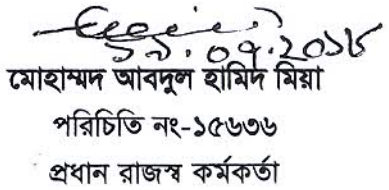 ১৯.০৭.২০১৮
মোহাম্মদ আবদুল হামিদ মিয়া
পরিচিতি নং-১৫৬৩৬
প্রধান রাজস্ব কর্মকর্তা